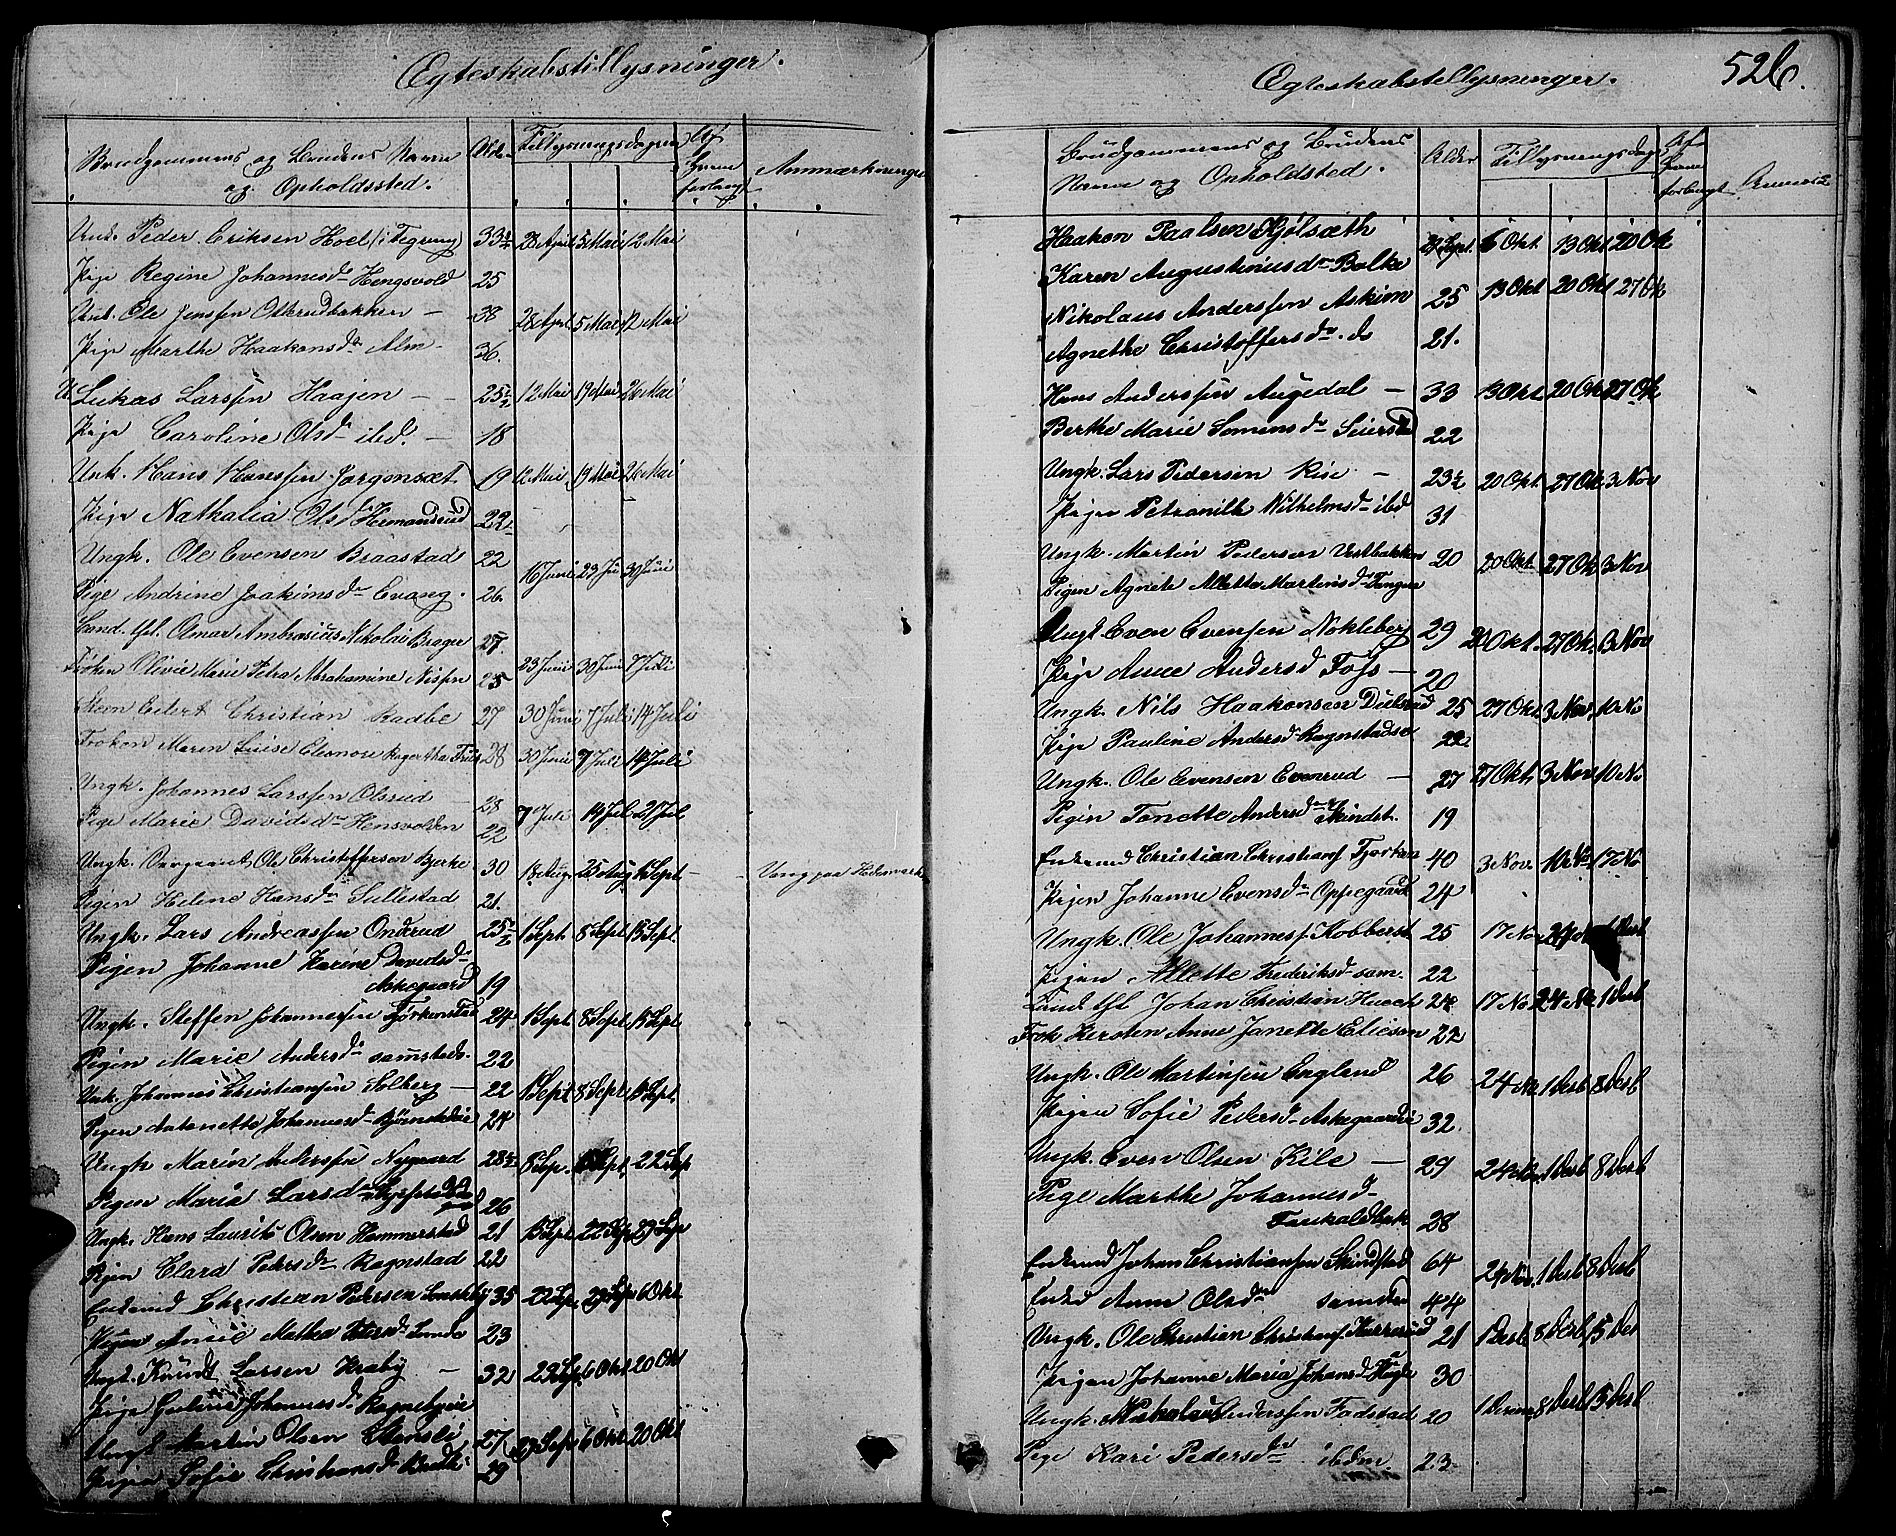 Egteskabstillysninger.
Brudgommens og Brudens Navne Alder Tillysningsdagene Af
og Opholdssted. hvem forlangt Anmærkninger
Unk. Peder Eriksen Hoel (i Tegeung) 33½ 28 April 5 Mai 12 Mai
Pige Regine Johannesdr Hengsvold 25
Unk. Ole Jensen Olterudbakken – 38 28 April 5 Mai 12 Mai
Pige Marthe Haakonsdr Alm – 36.
U. Lukas Larssen Haajen – 25½ 12 Mai 19 Mai 26 Mai
Pige Caroline Olsdr ibd. – 18
Unk. Hans Hanssen Jørgensæt 19 12 Mai 19 Mai 26 Mai
Pige Nathalia Olsdr Hermandsrud 22
Ungk. Ole Evensen Braastad 22
Pige Andrine Joakimsdr Evang. 26. 16 Juni 23 Ju 30 Juni
Cand. tfl. Olmar Ambrosius Nikolai Brager 27
Frøken Olivie Marie Petra Abrahamine Nissen 25 23 Juni 30 Juni 7 Juli
Eilert Christian Radbe 27 30 Juni 7 Juli 14 Juli
Frøken Maren Luise Eleonore Friis 28 30 Juni 7 Juli 14 Juli
Ungk. Johannes Larssen Olsrud 28
Pige Marie Davidsdr Hensvolden 22 7 Juli 14 Jul 21 Jul
Ungk. Ole Christoffersen Bjerke 30 18 Aug. 25 Aug 1 Sept – Vang paa Hedemark
Pigen Helene Hansdr Sillestad 21.
Ungk. Lars Andreassen Ondrud 25½ 1 Sept 8 Sept 15 Sept.
Pigen Johanne Karine Davidsdr
Askegaard 19
Ungk. Steffen Johannessen Fjørkenstad 24 1 Sept 8 Sept 15 Sept
Pigen Marie Andersdr samsteds. 22
Unk. Johannes Christiansen Solberg – 22 1 Sept 8 Sept 15 Sept.
Pigen Antonette Johannesdr 24
Ungk Marin Anderssen Nygaard 28½ 8 Sep. 15 Sept. 22 Sep
Pigen Maria Larsdr 26
Ungk. Hans Laurits Olsen Hammerstad 21 15 Sept 22 Sep 29 Sep
Pigen Clara Pedersdr Ragnstad 22
Enkemd Christian Pedersen Lønsteby 35 22 Sep. 29 Sep 6 Okt.
Pigen Anne Mathea Pedersdr Sande 23
Ungk. Knudt Larsen Kraby – 32 29 Sep. 6 Okt 20 Okt
Pige Guline Johannesdr
Ungk Martin Olsen 27 29 Sept 6 Okt 20 Okt
Pigen Sofie Christiansdr 29
Egteskabstillysninger. 526.
Brudgommens og Brudens Alder Tillysningsdag Af hvem
Navne og Opholdsted. forlangt Anmærk
Haakon Paalsen Kjølsæth 29 Sept. 6 Okt 13 Okt 20 Ok
Karen Augustinusdr Balke
Nikolaus Anderssen Askim 25 13 Okt 20 Okt 27 Ok
Agnethe Christoffersdr. do 21.
Hans Anderssen Augedal – 33 13 Okt. 20 Okt 27 Ok
Berthe Marie Simensdr Seiersted 22
Ungk. Lars Pedersen Rise – 23½ 20 Okt. 27 Ok 3 Nov
Pigen Petronille Vilhelmsdr ibd 31
Ungk. Martin Pedersen Vestbakken 20 20 Okt. 27 Ok 3 Nov
Pigen Agnete Alletta Martinusdr Tangen
Ungk Even Evensen Nøkleberg 29 20 Okt. 27 Ok. 3 Nov
Pige Anne Andersd Foss – 20
Ungk. Nils Haakonsen Dulsrud 25 27 Okt 3 Nov. 10 No
Pige Pauline Andersdr Ragnstadse 22
Ungk. Ole Evensen Evenrud – 27 27 Okt. 3 Nov 10 No
Pigen Tonette Andersdr Skindst. 19
Enkemd Christian Christians. Fjørken 40 3 Nov. 10 No 17 No
Pigen Johanne Evensdr Oppegaard 24
Ungk. Ole Johanness. Kobberst. 25 17 No. 24 No 1 Desb
Pigen Allette Frederiksdr sam. 22
Cand. tfl. Johan Christian Heuch 24 17 No 24 No 1 Desb
Frøk Kersten Anne Janette Ericson 22
Ungk. Ole Martinsen Englund 26 24 No. 1 Desb 8 Desb
Pigen Sofie Pedersdr Askegaardeie 32.
Ungk. Even Olsen Kile – 29 24 No. 1 Desb 8 Desb
Pige Marthe Johannesdr
Faukaldbak 28
Enkemd Johan Christiansen Skundstad 64 24 Nov. 1 Desb 8 Desb
Enke Anne Olsdr samsteds 44
Ungk. Ole Christian Christians. Kurrerud 21 1 Desb 8 Desb 15 Des
Pigen Johanne Maria Johansdr 30
Ungk. Nikolai Anderssen Fodstad 20 1 Decem 8 Desb 15 Desb
Pige Kari Pedersdr ibdm. 23.